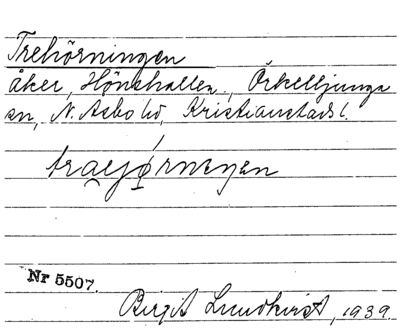 Trehörningen
åker, Hönshallen, Örkelljunga
sn, N. Asbo hd, Kristianstads l.
Nr 5507.
Birgit Lundkvist, 1939.